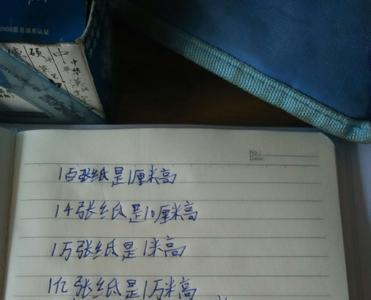 No.:
Date:
1百张纸是1厘米高
1千张纸是10厘米高
1万张纸是1米高
1亿张纸是1万米高